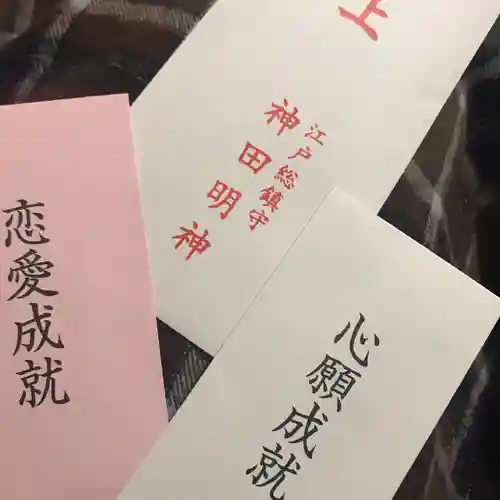 上
江戸総鎮守
神田明神
恋愛成就
心願成就